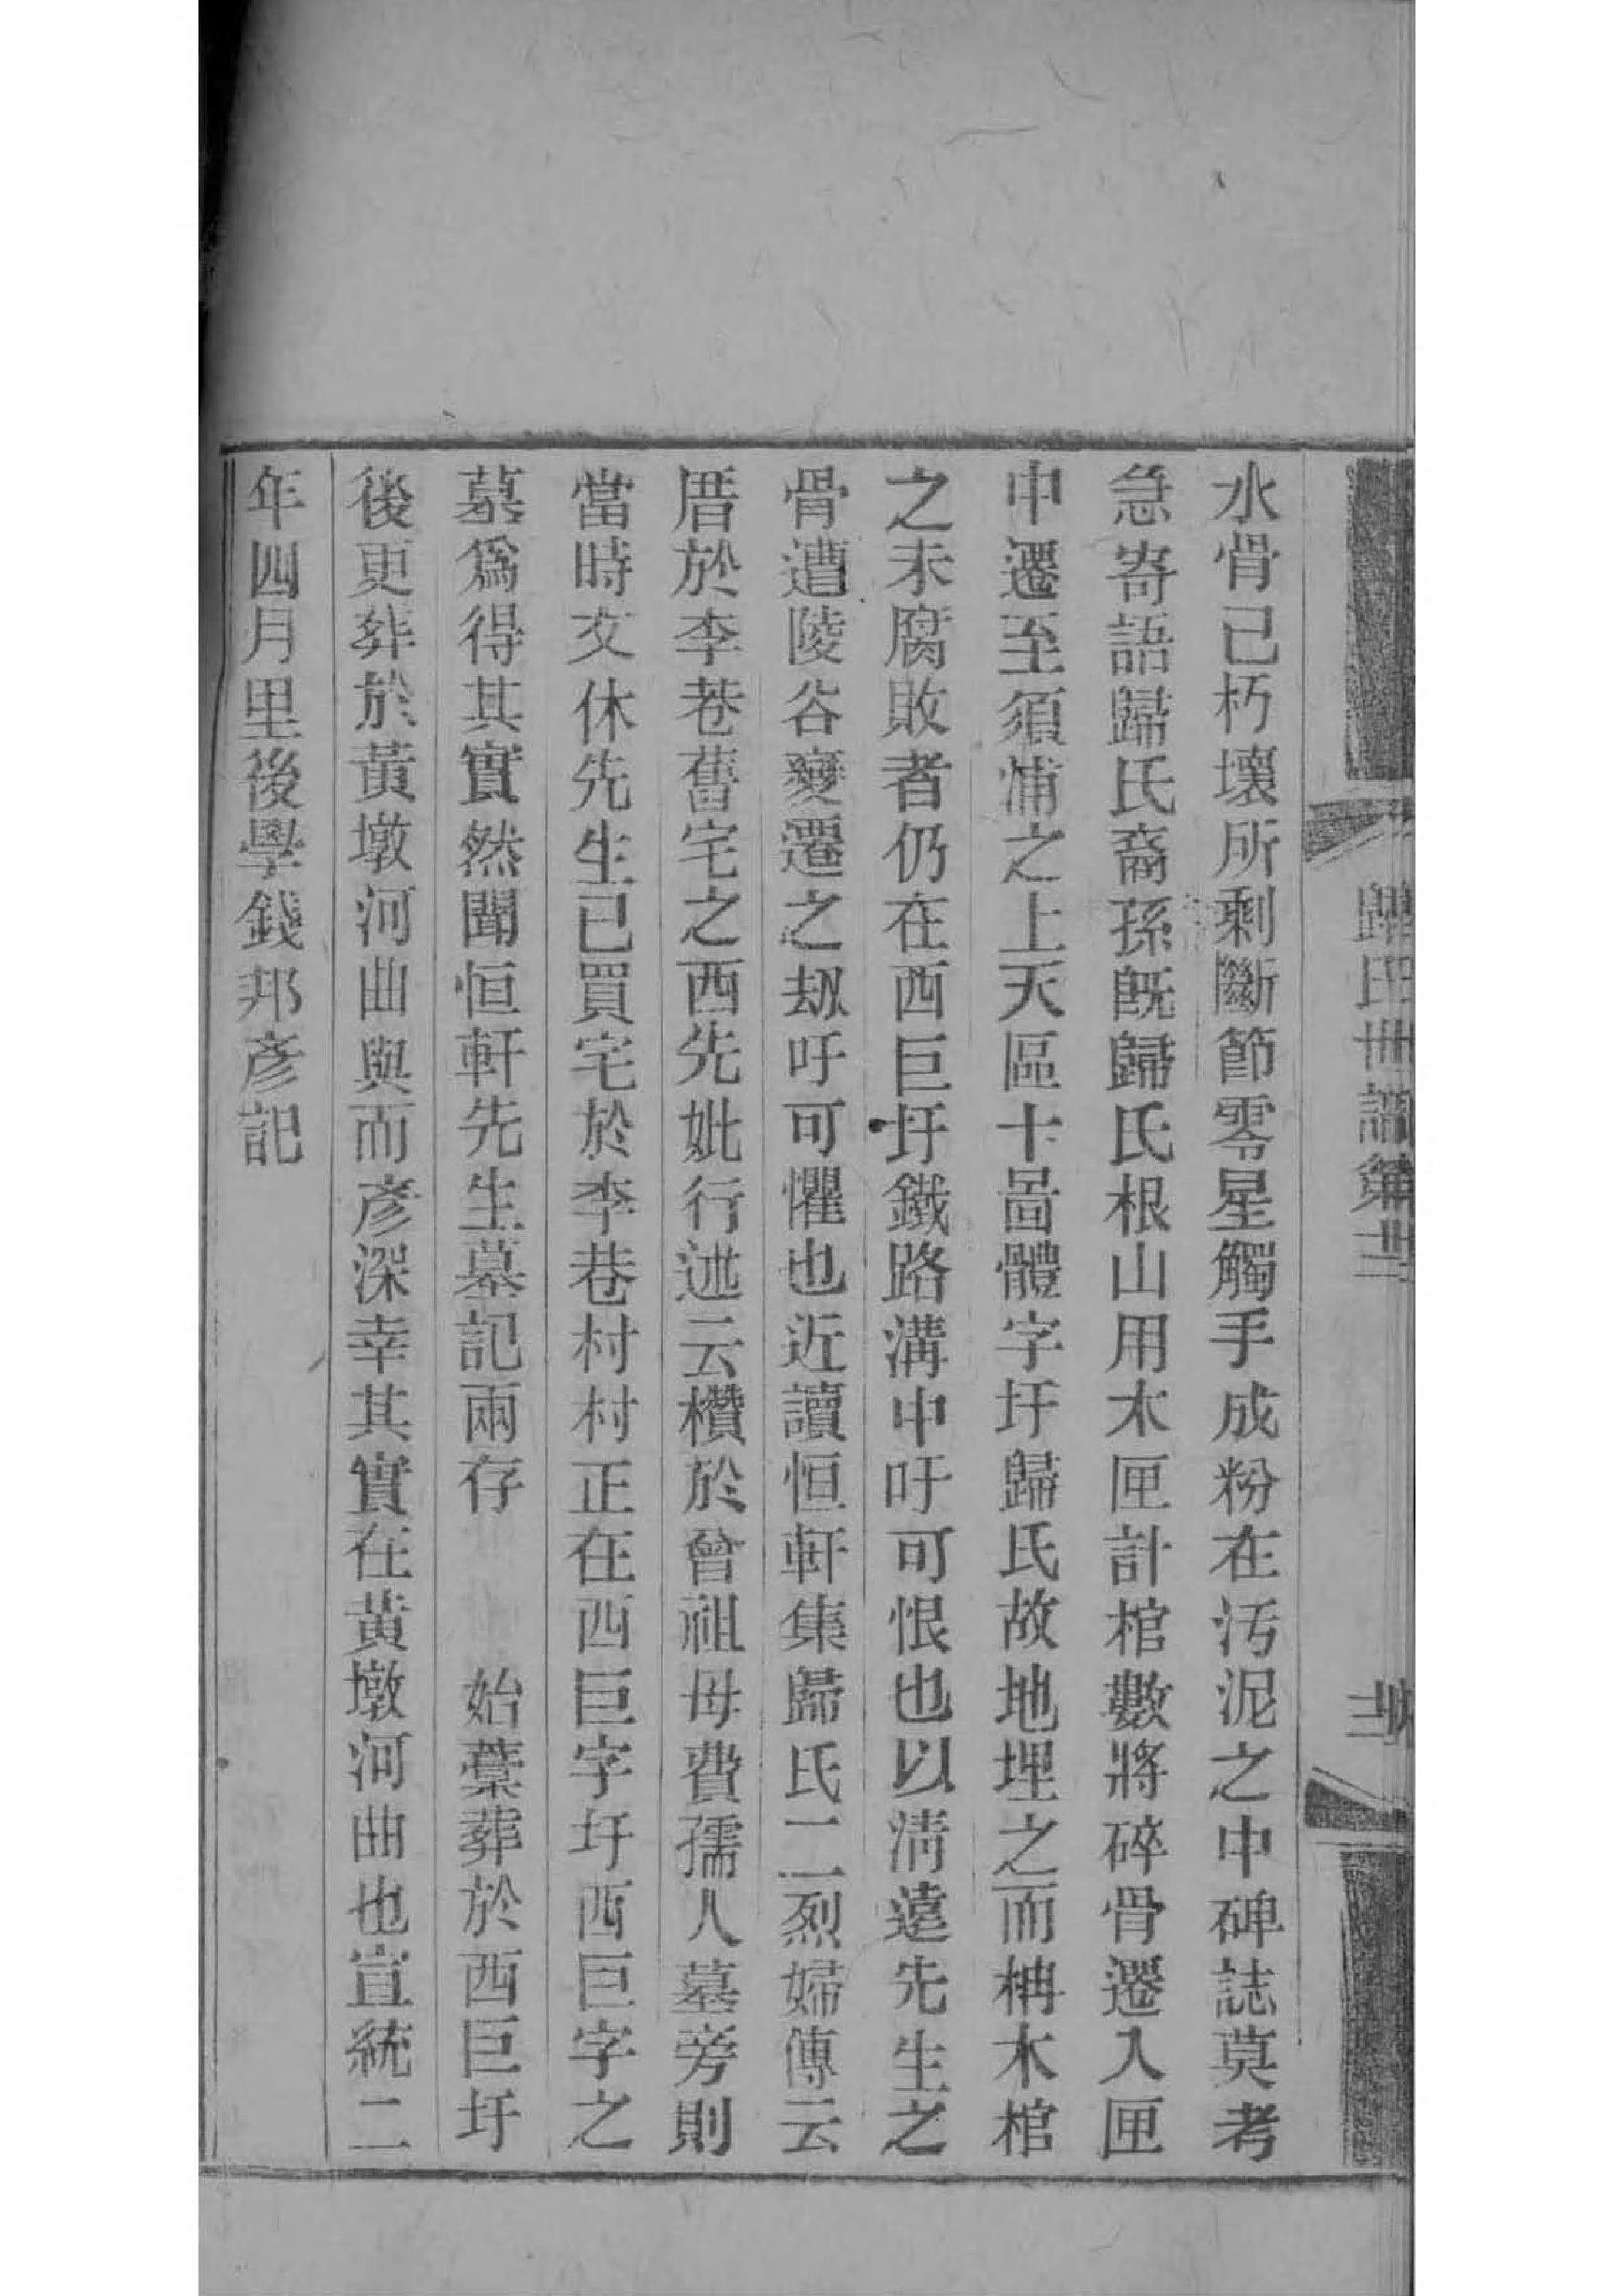 歸氏世譜
水骨已朽壞所剩斷節零星觸手成粉在污泥之中碑誌莫考
急寄語歸氏裔孫旣歸氏根山用木匣計棺數將碎骨遷入匣
中遷至須浦之上天區十啚體字圩歸氏故地埋之而柟木棺
之未腐敗者仍在西巨圩鐵路溝中吁可恨也以清遠先生之
骨遭陵谷變遷之劫吁可懼也近讀恒軒集歸氏二烈婦傳云
厝於李巷舊宅之西先妣行述云欑於曾祖母費孺人墓旁則
當時文休先生已買宅於李巷村村正在西巨字圩西巨字之
墓爲得其實然聞恒軒先生墓記兩存 始藁葬於西巨圩
後更葬於黃墩河曲與而彥深幸其實在黃墩河曲也宣統二
年四月里後學錢邦彥記